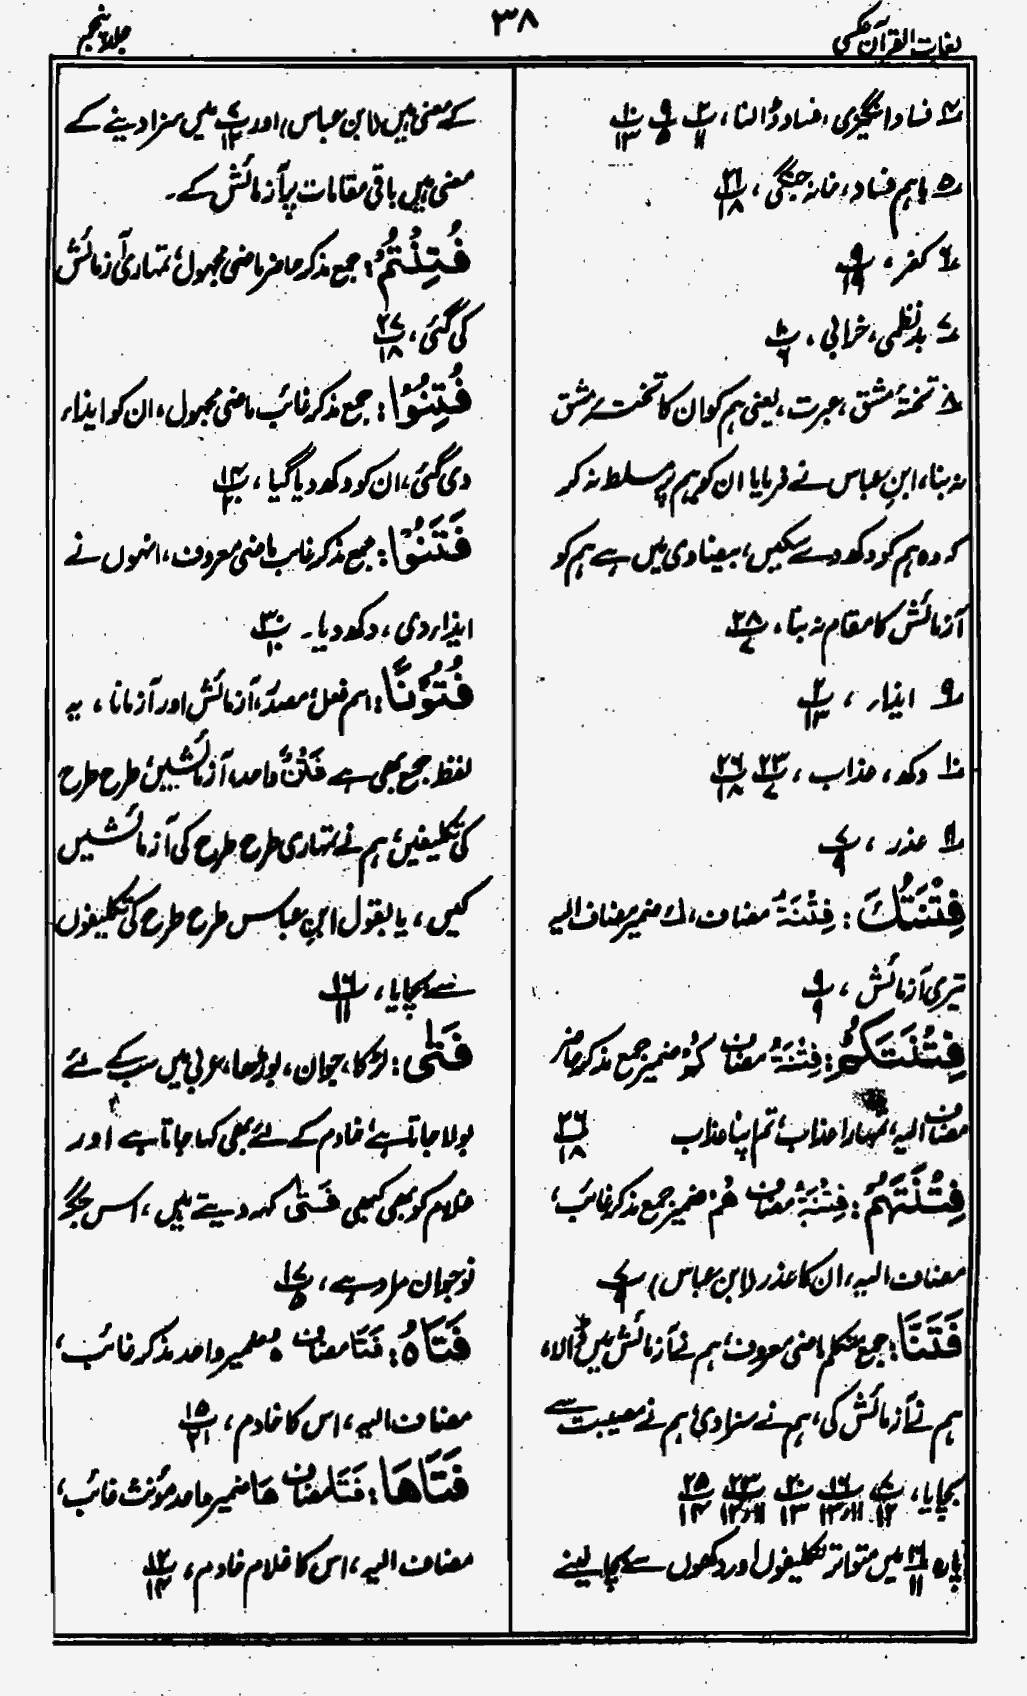 لغات القرآن عکسی
۳۸
جلد پنجم
۴ فساد انگیزی، فساد ڈالنا، پ۲/۱۱ پ۹/۵ پ۱۰/۱۳
۵ باہم فساد، خانہ جنگی، پ۲۱/۱۸
۶ کفر، پ۹/۱۹
۷ بدنظمی، خرابی، پ۱۰/۶
۸ تختۂ مشق، عبرت، یعنی ہم کو ان کا تختۂ مشق
نہ بنا، ابنِ عباس نے فرمایا ان کو ہم پر مسلط نہ کر
کہ وہ ہم کو دکھ دے سکیں، بیضاوی میں ہے ہم کو
آزمائش کا مقام نہ بنا، پ۲۸/۷
۹ ایذار، پ۲/۱۳
۱۰ دکھ، عذاب، پ۲۳/۷ پ۲۶/۱۸
۱۱ عذر، پ۷/۹
فِتْنَتُكَ: فِتْنَةُ مضاف، ك ضمیر مضاف الیہ
تیری آزمائش، پ۹/۹
فِتْنَتَكُمْ: فِتْنَةَ مضاف كُمْ ضمیر جمع مذکر حاضر
مضاف الیہ، تمہارا عذاب، تم اپنا عذاب پ۲۶/۱۸
فِتْنَتُهُمْ: فِتْنَةُ مضاف هُمْ ضمیر جمع مذکر غائب،
مضاف الیہ، ان کا عذر (ابن عباس) پ۷/۹
فَتَنَّا: جمع متکلم ماضی معروف، ہم نے آزمائش میں ڈالا،
ہم نے آزمائش کی، ہم نے سزا دی، ہم نے مصیبت سے
بچایا، پ۷/۱۲ پ۱۶/۱۱،۱۳ پ۲۰/۱۳ پ۲۳/۱۱،۱۲ پ۲۵/۱۴
پارہ ۱۶/۱۱ میں متواتر تکلیفوں اور دکھوں سے بچا لینے
کے معنی ہیں (ابن عباس) اور پ۷/۱۲ میں سزا دینے کے
معنی ہیں باقی مقامات پر آزمائش کے۔
فُتِنْتُمْ: جمع مذکر حاضر ماضی مجہول، تمہاری آزمائش
کی گئی، پ۲۷/۱۸
فُتِنُوْا: جمع مذکر غائب ماضی مجہول، ان کو ایذار
دی گئی، ان کو دکھ دیا گیا، پ۱۴/۲۰
فَتَنُوْا: جمع مذکر غائب ماضی معروف، انہوں نے
ایذار دی، دکھ دیا۔ پ۳۰/۱۰
فُتُوْنًا: اسم فعل، مصدر، آزمائش اور آزمانا، یہ
لفظ جمع بھی ہے فَتْنٌ واحد، آزمائشیں، طرح طرح
کی تکلیفیں، ہم نے تمہاری طرح طرح کی آزمائشیں
کیں، یا بقول ابنِ عباس طرح طرح کی تکلیفوں
سے بچایا، پ۱۶/۱۱
فَتًى: لڑکا، جوان، بوڑھا، عربی میں سب کے لئے
بولا جاتا ہے، خادم کے لئے بھی کہا جاتا ہے اور
غلام کو بھی کبھی فَتًى کہہ دیتے ہیں، اس جگہ
نوجوان مراد ہے، پ۱۷/۵
فَتَاهُ: فَتَا مضاف ه ضمیر واحد مذکر غائب،
مضاف الیہ، اس کا خادم، پ۱۵/۲۱
فَتَاهَا: فَتَا مضاف هَا ضمیر واحد مؤنث غائب،
مضاف الیہ، اس کا غلام خادم، پ۱۲/۱۴